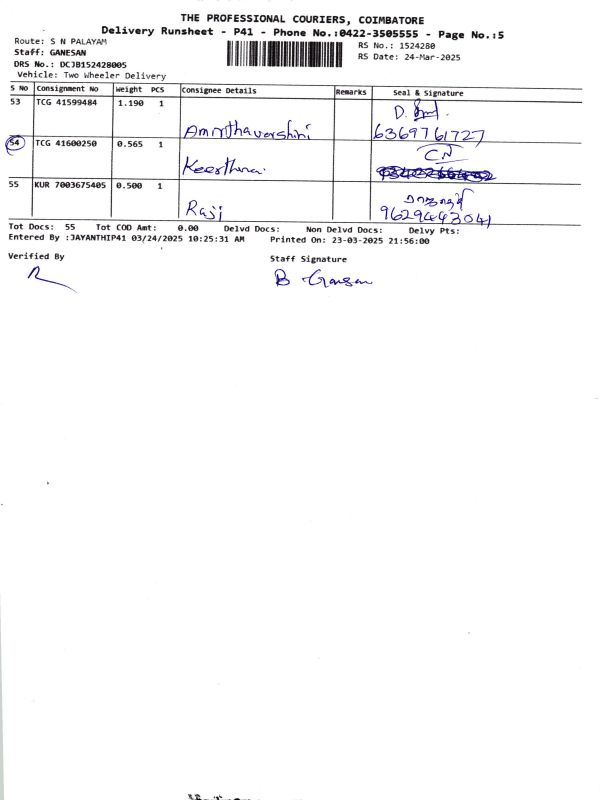 THE PROFESSIONAL COURIERS, COIMBATORE
Delivery Runsheet - P41 - Phone No.:0422-3505555 - Page No.:5
Route: S N PALAYAM
RS No.: 1524280
Staff: GANESAN
RS Date: 24-Mar-2025
DRS No.: DCJB152428005
Vehicle: Two Wheeler Delivery
S No Consignment No Weight PCS Consignee Details Remarks Seal & Signature
53 TCG 41599484 1.190 1
Amrithavarshini 6369761727
54 TCG 41600250 0.565 1 CN
Keerthana
55 KUR 7003675405 0.500 1
Raji 9629443041
Tot Docs: 55 Tot COD Amt: 0.00 Delvd Docs: Non Delvd Docs: Delvy Pts:
Entered By :JAYANTHIP41 03/24/2025 10:25:31 AM Printed On: 23-03-2025 21:56:00
Verified By Staff Signature
B Ganesan